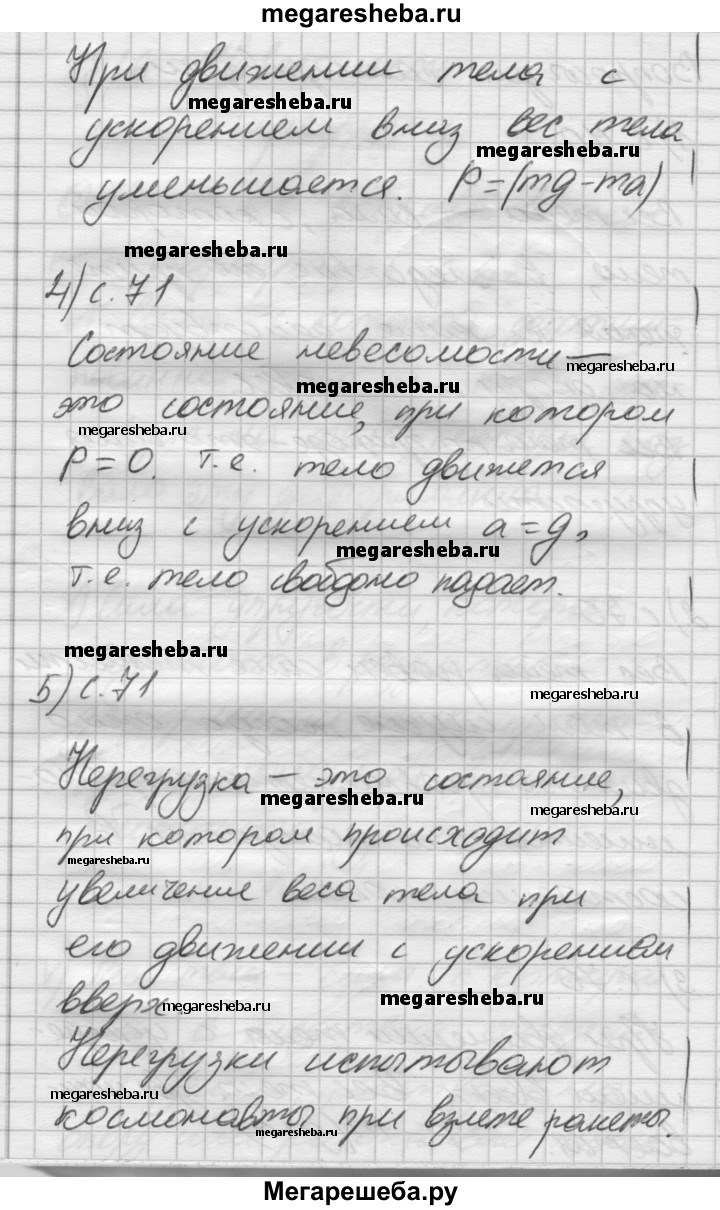 megaresheba.ru
При движении тела с
megaresheba.ru
ускорением вниз вес тела
megaresheba.ru
уменьшается. P=(mg-ma)
megaresheba.ru
4) с. 71
Состояние невесомости —
megaresheba.ru
megaresheba.ru
это состояние, при котором
megaresheba.ru
P=0. т.е. тело движется
вниз с ускорением a=g,
megaresheba.ru
т.е. тело свободно падает.
megaresheba.ru
5) с. 71
megaresheba.ru
Перегрузка — это состояние,
megaresheba.ru
megaresheba.ru
при котором происходит
megaresheba.ru
увеличение веса тела при
его движении с ускорением
вверх.
megaresheba.ru
megaresheba.ru
Перегрузки испытывают
megaresheba.ru
космонавты при взлете ракеты.
megaresheba.ru
Мегарешеба.ру